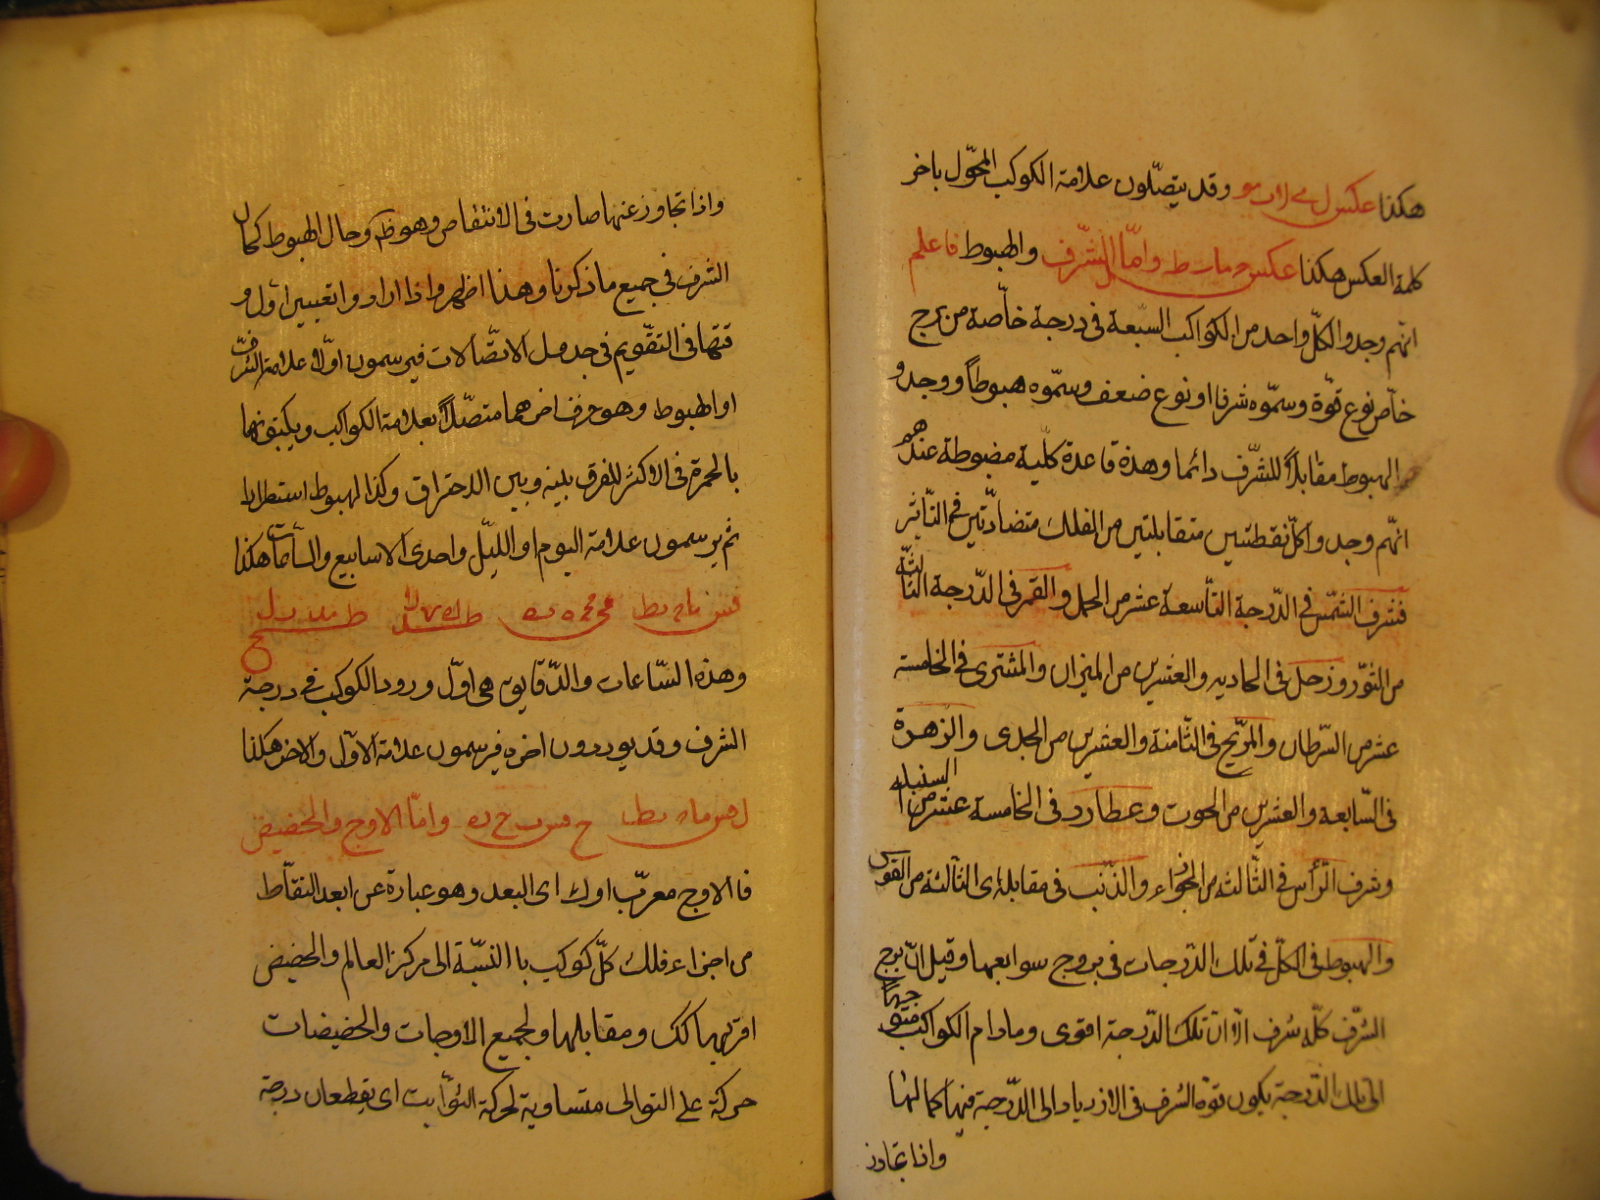 هكذا عكس وقد يتصّلون علامة الكوكب المحوّل باخر
كلمة العكس هكذا عكس وامّا الشّرف والهبوط فاعلم
انّهم وجدوا لكلّ واحد من الكواكب السّبعة فى درجة خاّصة من برج
خاّص نوع قوّة وسمّوه شرفا او نوع ضعف وسمّوه هبوطاً ووجدو
الهبوط مقابلاً للشّرف دائما وهذه قاعدة كلّية مضبوطة عندهم
انّهم وجدوا كلّ نقطتين متقابلتين من الفلك متضادّتين فى التّاثير
فشرف الشّمس فى الدّرجة التّاسعة عشر من الحمل والقمر فى الدّرجة الثّالثة
من الثّور وزحل فى الحاديه والعشرين من الميزان والمشترى فى الخامسة
عشر من السّرطان والمرّيخ فى الثّامنة والعشرين من الجدى والزهرة
فى السّابعة والعشرين من الحوت وعطارد فى الخامسة عشر من السنبله
وشرف الرّأس فى الثّالثه من الجوزاء والذّنب فى مقابله اى الثالثة من القوس
والهبوط فى الكلّ فى تلك الدّرجات فى بروج سوابعها وقيل انّ برج
الشّرف كلّه شرف الاّ انّ تلك الدّرجة اقوى ومادام الكواكب متوجهاً
الى تلك الدّرجة يكون قوّة الشرف فى الازدياد الى الدّرجة فيها كمالها
واذا تجاوز
واذا تجاوز عنها صارت فى الانتقاص وهو ظ وحال الهبوط كحال
الشرف فى جميع ما ذكرنا وهذا اظهر واذا ارادوا تعيين اوّل و
قتها فى التقّويم فى جدول الاتصّالات فيرسمون اوّلا علامة الشرف
او الهبوط وهو حرف اخرهما متصّلاً بعلامة الكواكب ويكبتونها
بالحمرة فى الاكثر للفرق بينه وبين الاحتراق وكذا الهبوط استطرادا
ثم يرسمون علامة اليوم او اللّيل واحدى الاسابيع والساعات هكذا
وهذه السّاعات والدّقايق هى اوّل ورود الكوكب فى درجة
الشرف وقد يوردون اخره فيرسمون علامة الاوّل والاخر هكذا
وامّا الاوج والحضيض
فالاوج معرّب اوك اى البعد وهو عبارة عن ابعد النقاّط
من اجزاء فلك كلّ كوكب باالنسّبة الى مركز العالم والحضيض
اقربها كك ومقابلها ولجميع الاوجات والحضيضات
حركة على التوالى متساوية لحركة الثوّابت اى يقطعان درجة